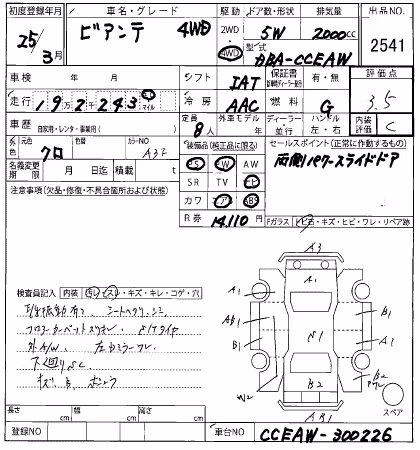 初度登録年月 車名・グレード 駆動 ドア数・形状 排気量 出品NO.
25/3月 ビアンテ 4WD 2WD 4WD 5W 2000cc 2541
型式 DBA-CCEAW
車検 年 月 シフト IAT 保証書 有・無 評価点 3.5
走行 192243 km マイル 冷房 AAC 燃料 G
車歴 自家用・レンタ・事業用( ) 定員 8人 外車モデル 年 ディーラー 並行 ハンドル 左・右 内装評価 C
外色 元色 クロ 色 カラーNO A3F
装備品(純正品に限る) セールスポイント(正常に作動するもの)
PS PW AW 両側パワースライドドア
名義変更期限 月 日迄 積載量 t SR TV
注意事項(欠品・修復・不具合箇所および状態) カワ ABS
R券 14,110円 Fガラス トビ石・キズ・ヒビ・ワレ・リペア跡
A3
A1
検査員記入 内装 汚レ・スレ・キズ・キレ・コゲ・穴
A1 B1
シートヘタリ・シミ
AB1
フロアカーペットスリキレ
B1 S1 A1
外A/W 左ミラーワレ
下廻りSC
B2 B2
W2 ワレ
AB1
スペア
長さ cm 幅 cm 高さ cm
登録NO 車台NO CCEAW-300226